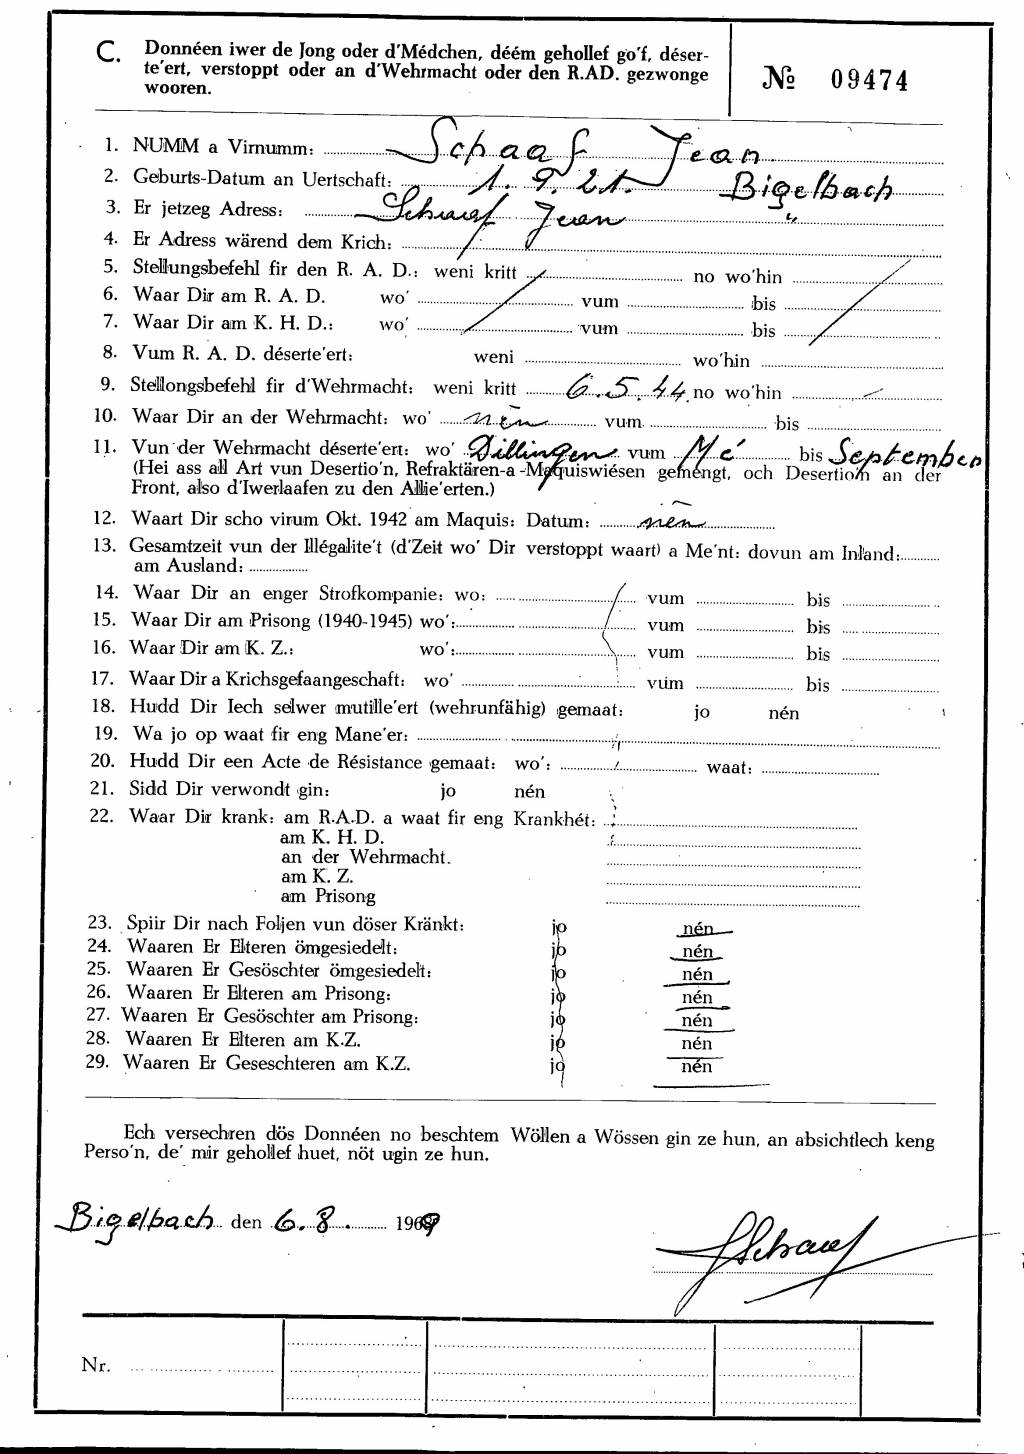 C. Donnéen iwer de Jong oder d'Médchen, déém gehollef go'f, déser-
te'ert, verstoppt oder an d'Wehrmacht oder den R.AD. gezwonge
wooren.
№ 09474
1. NUMM a Virnumm: Schaaf Jean
2. Geburts-Datum an Uertschaft: 1. 9. 21. Bigelbach
3. Er jetzeg Adress: Schaaf Jean "
4. Er Adress wärend dem Krich:
5. Stellungsbefehl fir den R. A. D.: weni kritt no wo'hin
6. Waar Dir am R. A. D. wo' vum bis
7. Waar Dir am K. H. D.: wo' vum bis
8. Vum R. A. D. déserte'ert: weni wo'hin
9. Stellongsbefehl fir d'Wehrmacht: weni kritt 6.5.44. no wo'hin
10. Waar Dir an der Wehrmacht: wo' nēn vum bis
11. Vun der Wehrmacht déserte'ert: wo' Dillingen vum Mé bis September
(Hei ass all Art vun Desertio'n, Refraktären-a -Maquiswiésen gemengt, och Desertio'n an der
Front, also d'Iwerlaafen zu den Allie'erten.)
12. Waart Dir scho virum Okt. 1942 am Maquis: Datum: nēn
13. Gesamtzeit vun der Illégalite't (d'Zeit wo' Dir verstoppt waart) a Me'nt: dovun am Inland:
am Ausland:
14. Waar Dir an enger Strofkompanie: wo: vum bis
15. Waar Dir am Prisong (1940-1945) wo': vum bis
16. Waar Dir am K. Z.: wo': vum bis
17. Waar Dir a Krichsgefaangeschaft: wo' vum bis
18. Hudd Dir Iech selwer mutille'ert (wehrunfähig) gemaat: jo nén
19. Wa jo op waat fir eng Mane'er:
20. Hudd Dir een Acte de Résistance gemaat: wo': waat:
21. Sidd Dir verwondt gin: jo nén
22. Waar Dir krank: am R.A.D. a waat fir eng Krankhét:
am K. H. D.
an der Wehrmacht.
am K. Z.
am Prisong
23. Spiir Dir nach Foljen vun döser Kränkt: jo nén
24. Waaren Er Elteren ömgesiedelt: jo nén
25. Waaren Er Gesöschter ömgesiedelt: jo nén
26. Waaren Er Elteren am Prisong: jo nén
27. Waaren Er Gesöschter am Prisong: jo nén
28. Waaren Er Elteren am K.Z. jo nén
29. Waaren Er Geseschteren am K.Z. jo nén
Ech versechren dös Donnéen no beschtem Wöllen a Wössen gin ze hun, an absichtlech keng
Perso'n, de' mir gehollef huet, nöt ugin ze hun.
Bigelbach den 6.8. 1969
JSchaaf
Nr.